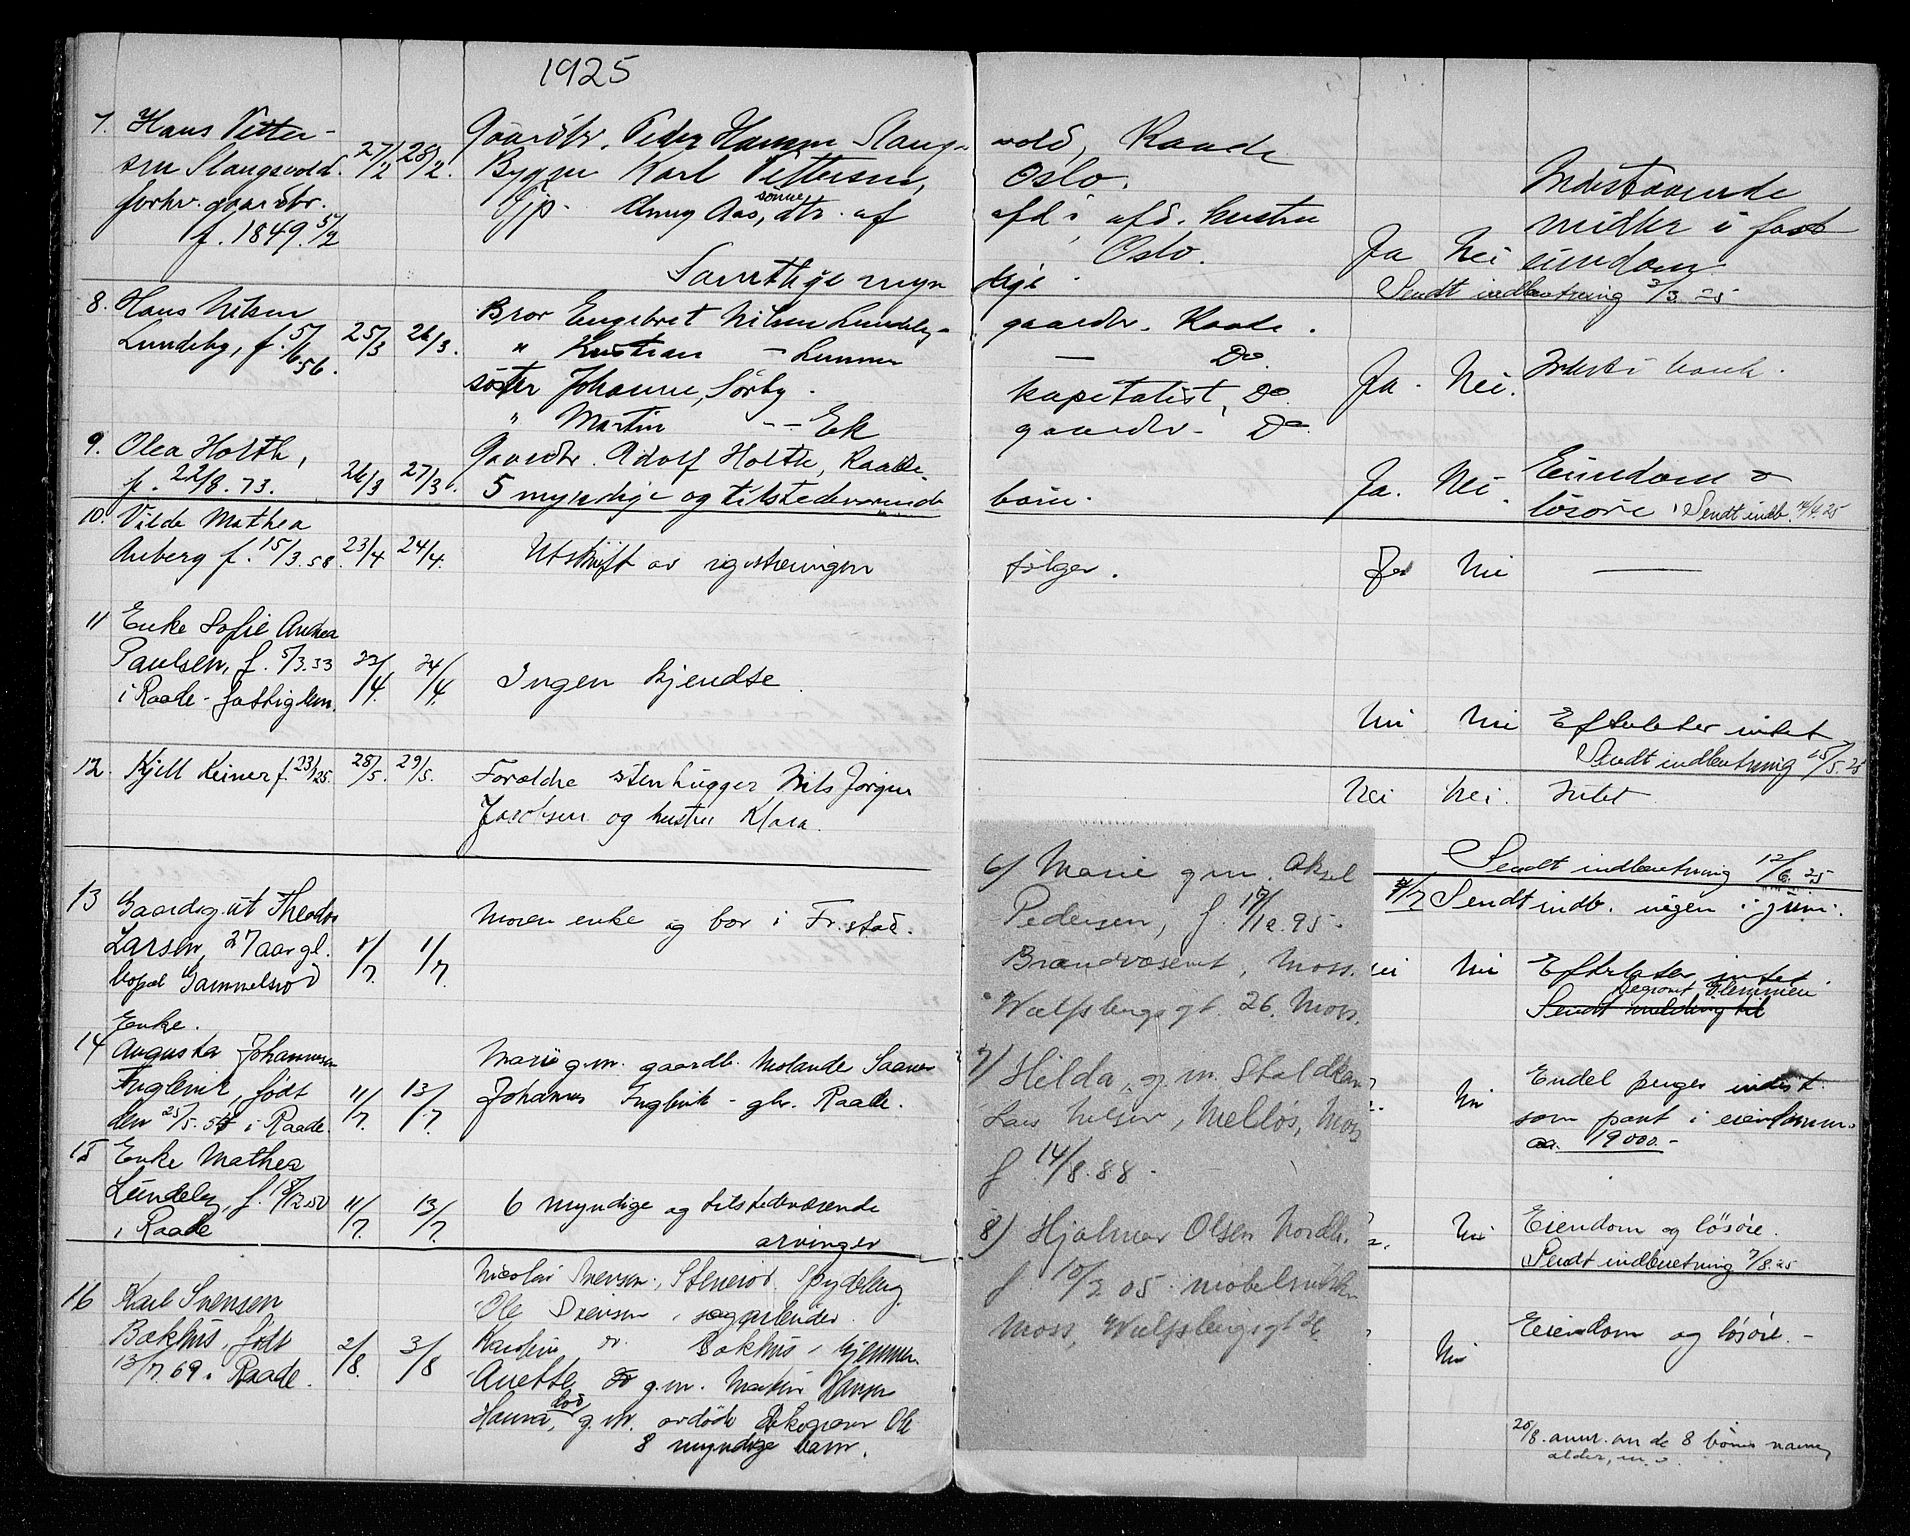 1925
7. Hans Petter-
sen Slangsvold. 27/2 28/2. Gaardbr. Peder Hansen Slangs- vold, Raade
forhv. gaardbr. Karl Pettersen, Oslo. Indestaaende
f. 1849. 5/2 Aas, sønne dtr. af afd. hustru midler i fast
Oslo. Ja Nei eiendom
Samtlige myn dige. Sendt indberetning 3/3. 25
8. Hans Nilsen
Lundeby, f. 5/6.56. 25/3 26/3. Bror Engebret Nilsen Lundeby - gaardbr. Raade.
" Kristian - — Do.
søster Johanne, Sørby. kapitalist, Do. Ja. Nei. Indest. i bank.
" Martin - - Ek gaardbr. Do.
9. Olea Holth,
f. 22/8. 73. 26/3 27/3. Gaardbr. Adolf Holth, Raade
5 myndige og tilstedeværende barn. Ja. Nei. Eiendom &
løsøre. Sendt indb. 14/4. 25
10. Vilde Mathea
Auberg f. 15/3. 58. 23/4 24/4. Utskrift av registreringen følger. Ja Nei —
11 Enke Sofie Andrea
Paulsen, f. 5/3. 33 22/4. 24/4. Ingen kjendte
i Raade - fattiglem. Nei Nei Efterlater intet
Sendt indberetning 15/5. 25
12. Kjell Reiner f. 23/ 25. 28/5. 29/5. Forældre stenhugger Nils Jørgen Nei Nei. Intet
Jacobsen og hustru Klara.
Sendt indberetning 12/6. 25
1/7 Sendt indb. ingen i juni.
13 Gaardsgut Theodor
Larsen, 27 aar gl. 1/7. 1/7. Moren enke og bor i Fr.stad. Nei Efterlater intet
bopæl Gammelsrød Begravet Glemmen
Sendt melding til
14 Enke.
Augusta Johannesen
Fuglevik, født 11/7. 13/7. Marie g.m. gaardb. Saaner
den 25/5. 54 i Raade. Johannes Fuglevik - gbr. Raade. Nei Endel penger indest.
som pant i eiendommen
ca. 19000.-
15 Enke Mathea
Lundeby, f. 18/12 50 11/7. 13/7. 6 myndige og tilstedeværende
i Raade arvinger Nei Eiendom og løsøre.
Sendt indberetning 7/8. 25
16 Karl Svensen
Bækhus, født 2/8. 3/8
13/7. 69 i Raade.
Nicolai Svensen, Stenerød, Spydeberg.
Ole Svensen,
Karoline Bækhus,
Anette g.m. Martin Hansen
Hanna, død g.m. avdøde Ole
8 myndige barn. Nei Eiendom og løsøre. -
25/8. anm. om de 8 børns navne,
alder, m.v.
6/ Marie g m. Aksel
Pedersen, f. 19/12. 95 -
Brandvæsenet, Moss.
Wulfsbergsgt. 26. Moss.
7/ Hilda, g. m.
Lars Nilsen, Melløs, Moss
f 14/8. 88 -
8) Hjalmar Olsen
f. 10/2 05. møbelsnekker
Moss, Wulfsbergsgt 26